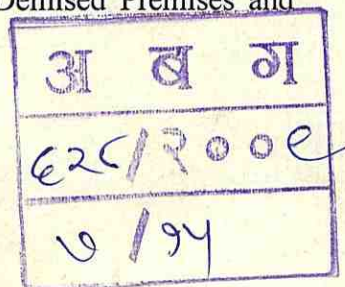 Demised Premises and
अ ब ग
६२८/२००९
७/१५